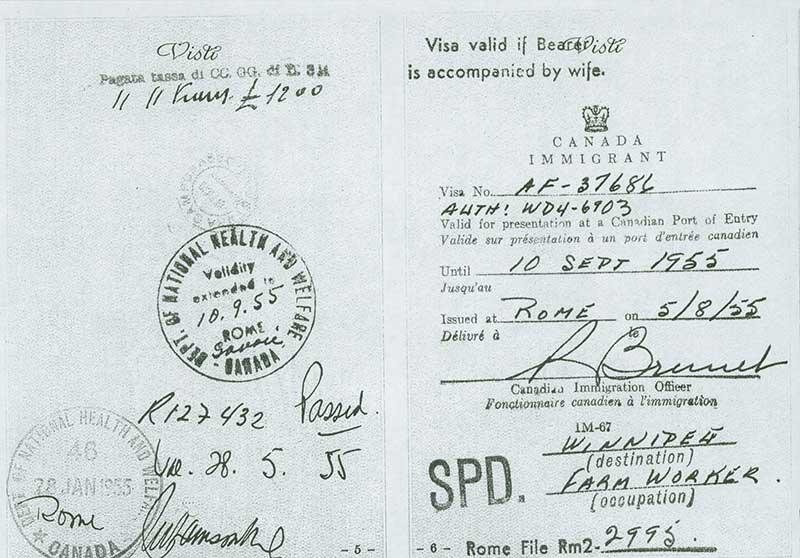 Visti
Pagata tassa di CC. GG. di
£ 1200
DEPT. OF NATIONAL HEALTH AND WELFARE
CANADA
Validity
extended to
10.9.55
ROME
R127432 Passed.
28. 5. 55
DEPT. OF NATIONAL HEALTH AND WELFARE
CANADA
46
28 JAN 1955
Rome
- 5 -
Visti
Visa valid if Bearer
is accompanied by wife.
CANADA
IMMIGRANT
Visa No. AF-37686
AUTH: WD4-6903
Valid for presentation at a Canadian Port of Entry
Valide sur présentation à un port d'entrée canadien
Until 10 SEPT 1955
Jusqu'au
Issued at ROME on 5/8/55
Délivré à le
R Brunet
Canadian Immigration Officer
Fonctionnaire canadien à l'immigration
IM-67
WINNIPEG
(destination)
SPD. FARM WORKER.
(occupation)
- 6 - Rome File Rm2- 2995.